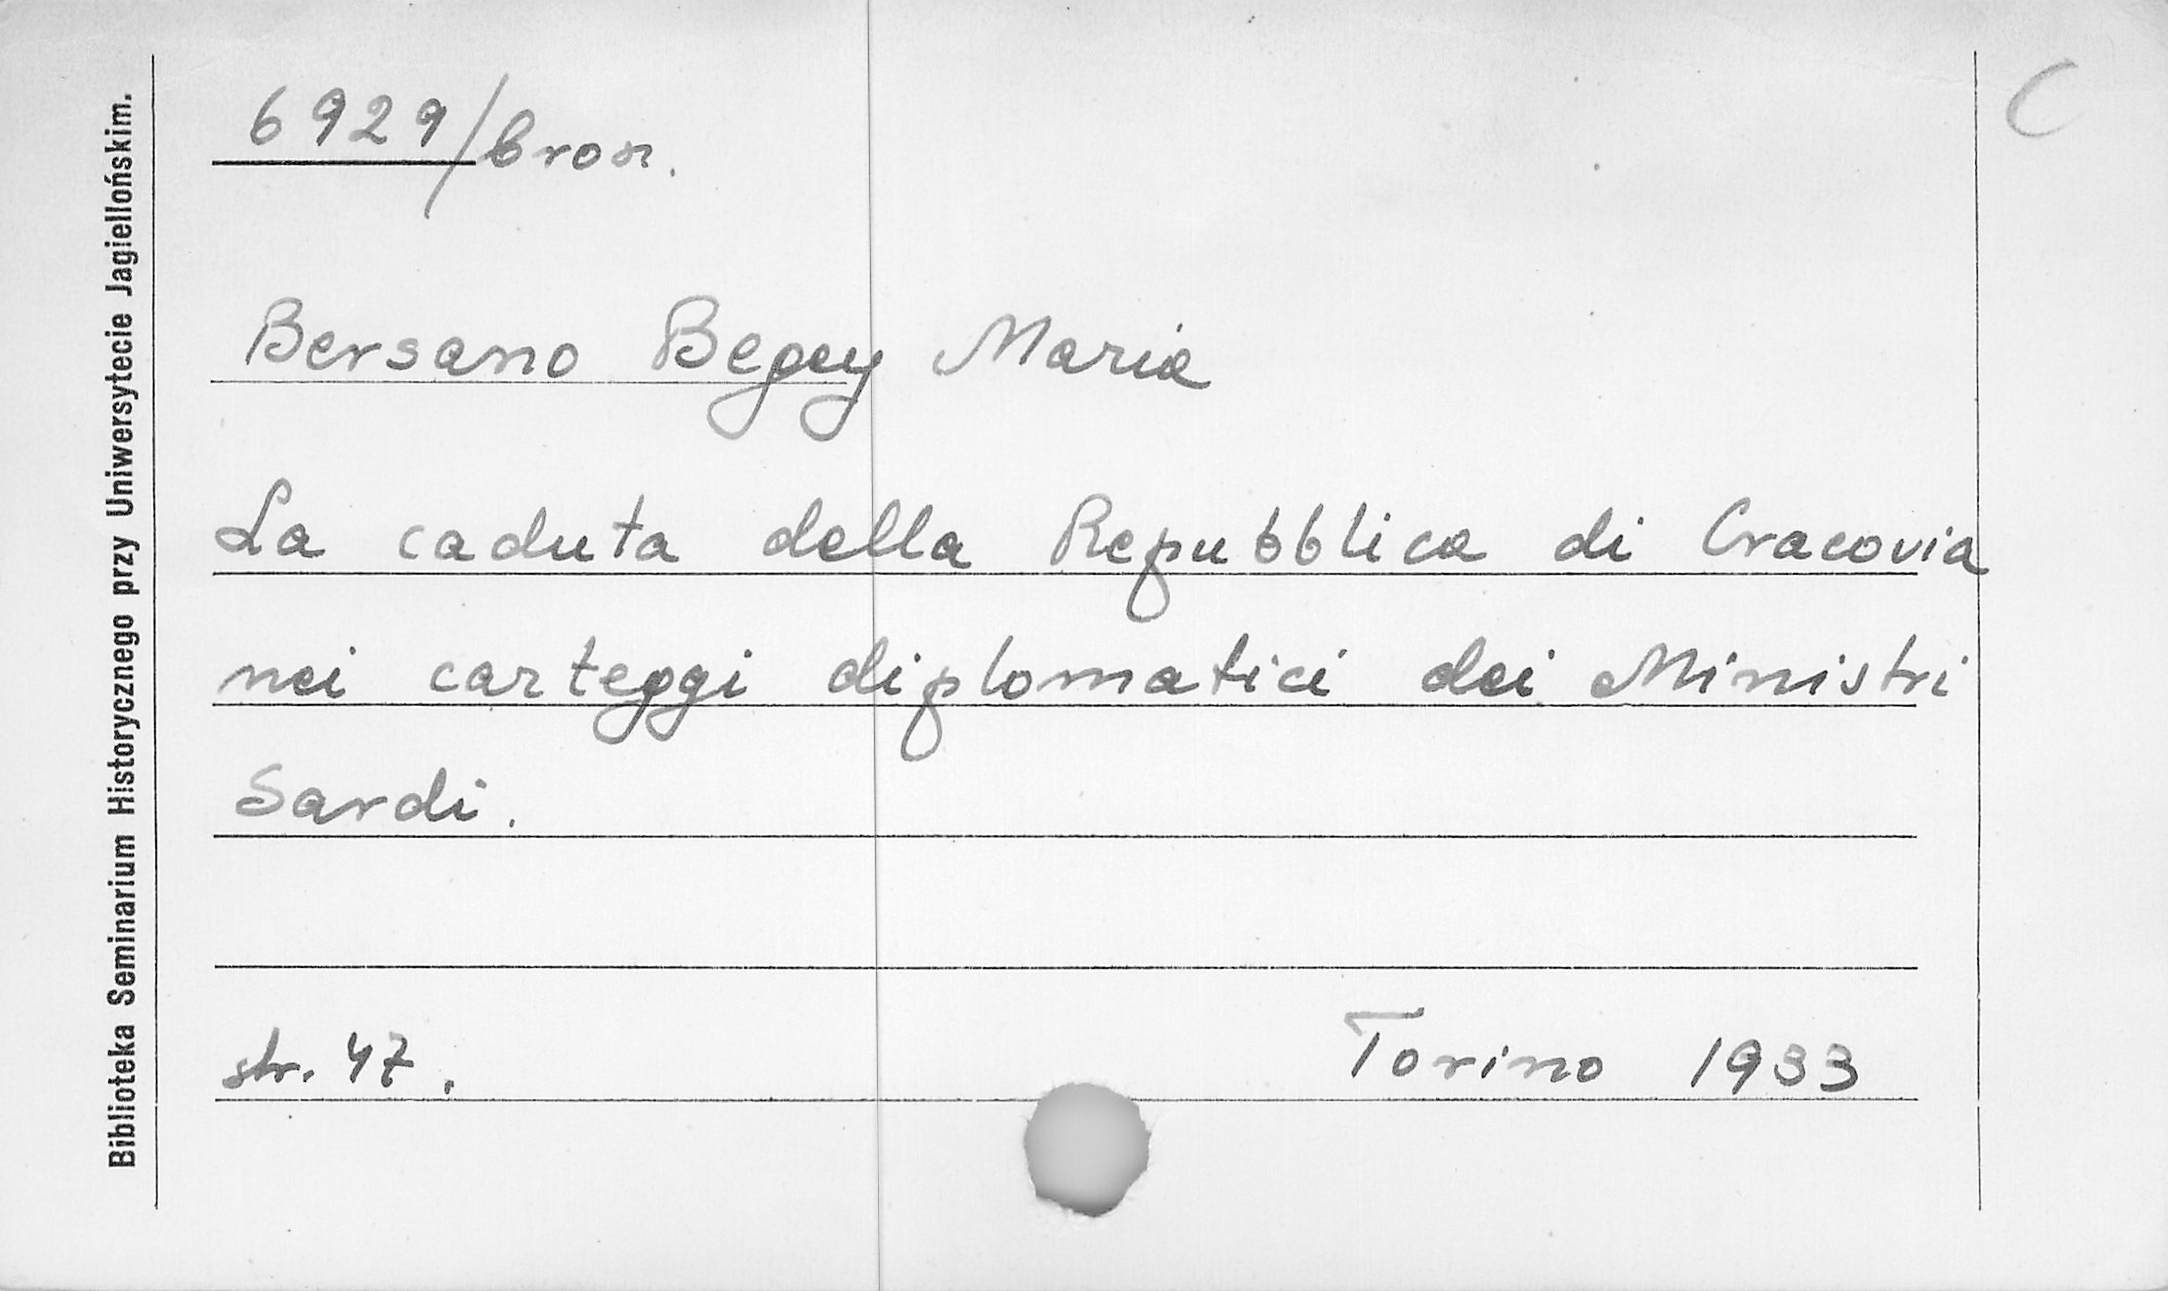 Biblioteka Seminarium Historycznego przy Uniwersytecie Jagiellońskim.
C
6929/bros.
Bersano Begey Maria
La caduta della Repubblica di Cracovia
nei carteggi diplomatici dei Ministri
Sardi.
str. 47.
Torino 1933